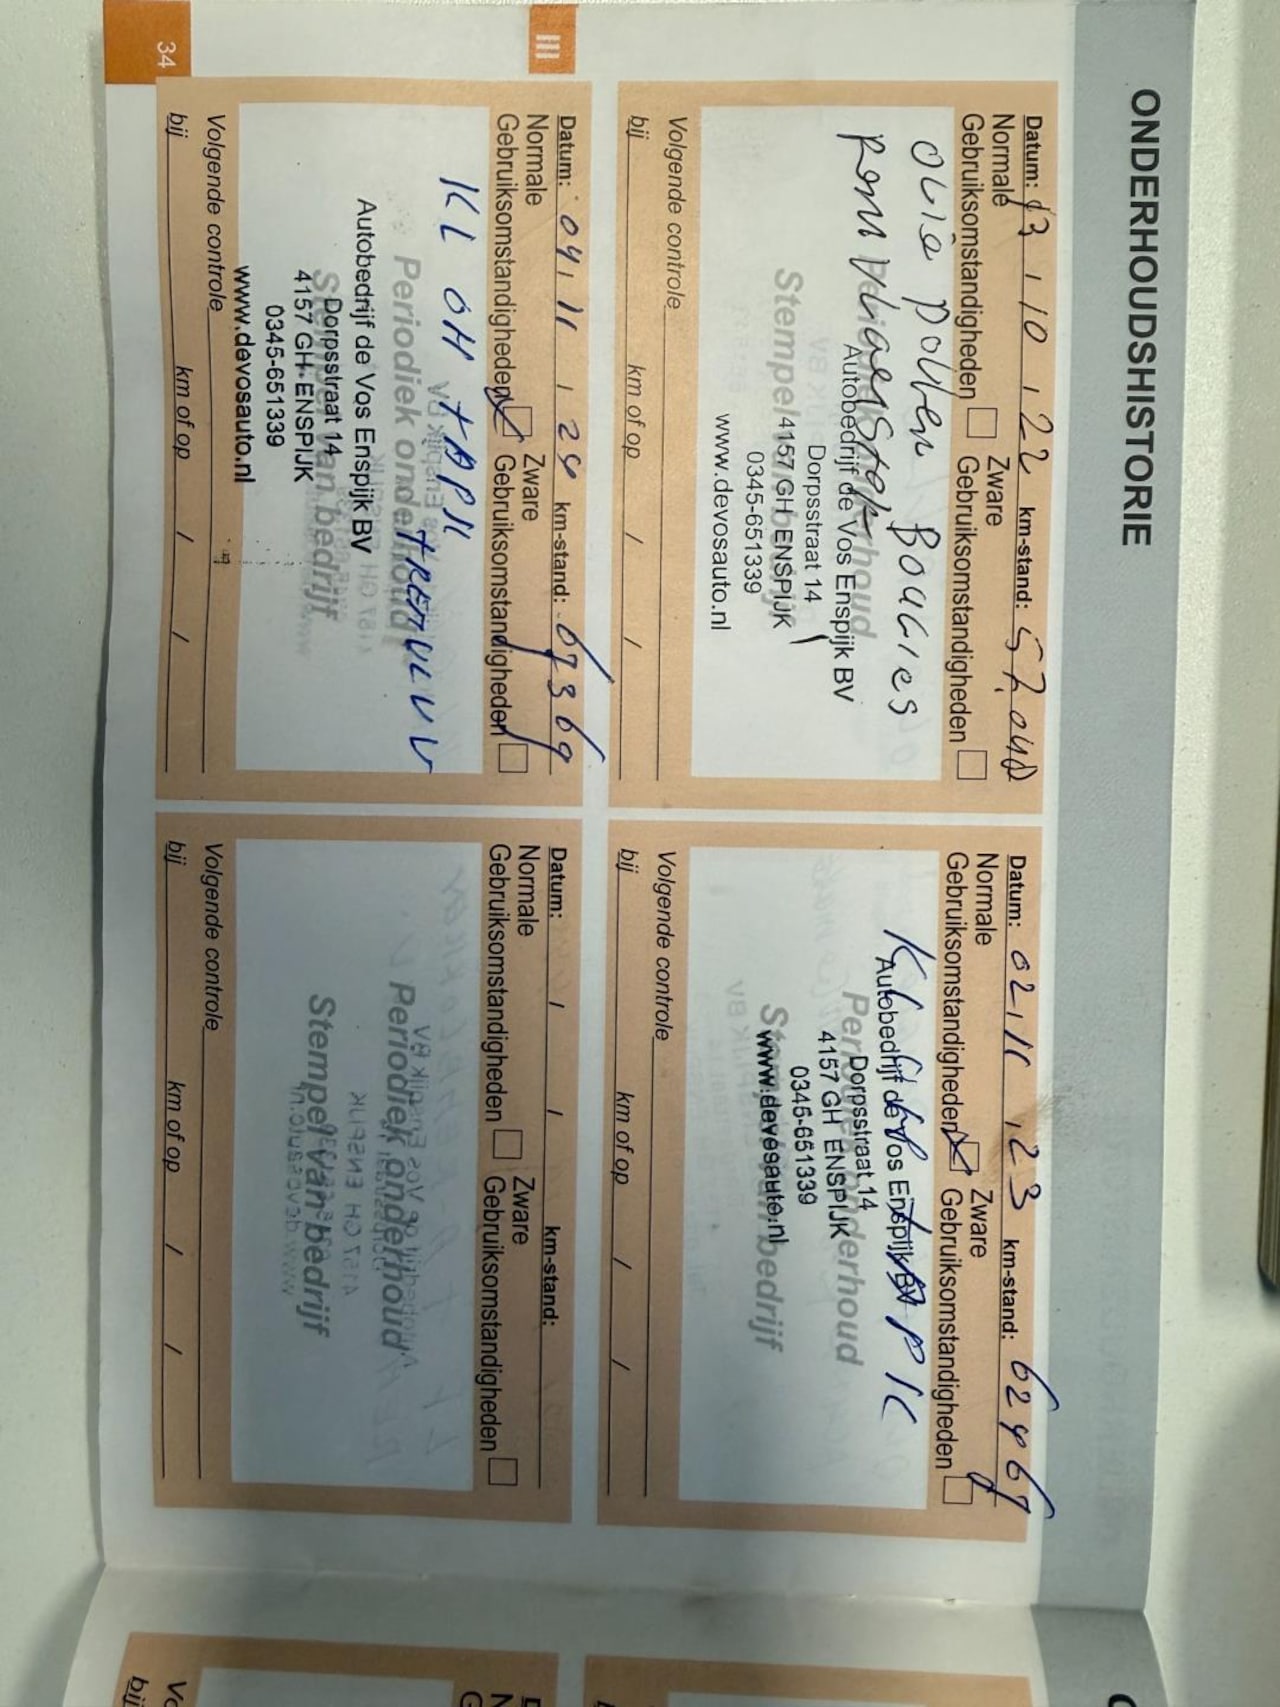 ONDERHOUDSHISTORIE
Datum: 13 / 10 / 22 km-stand:
Normale Zware
Gebruiksomstandigheden Gebruiksomstandigheden
olie pollen Bougies
Periodiek onderhoud
Autobedrijf de Vos Enspijk BV
Dorpsstraat 14
Stempel van bedrijf
4157 GH ENSPIJK
0345-651339
www.devosauto.nl
Volgende controle
bij km of op / /
Datum: 02 / 11 / 23 km-stand: 62467
Normale Zware
Gebruiksomstandigheden Gebruiksomstandigheden
Periodiek onderhoud
Autobedrijf de Vos Enspijk BV
Dorpsstraat 14
4157 GH ENSPIJK
0345-651339
Stempel van bedrijf
www.devosauto.nl
Volgende controle
bij km of op / /
III
Datum: 04 / 11 / 24 km-stand: 67369
Normale Zware
Gebruiksomstandigheden Gebruiksomstandigheden
KL OH + APK
Periodiek onderhoud
Autobedrijf de Vos Enspijk BV
Dorpsstraat 14
Stempel van bedrijf
4157 GH ENSPIJK
0345-651339
www.devosauto.nl
Volgende controle
bij km of op / /
Datum: / / km-stand:
Normale Zware
Gebruiksomstandigheden Gebruiksomstandigheden
Periodiek onderhoud
Stempel van bedrijf
Volgende controle
bij km of op / /
34